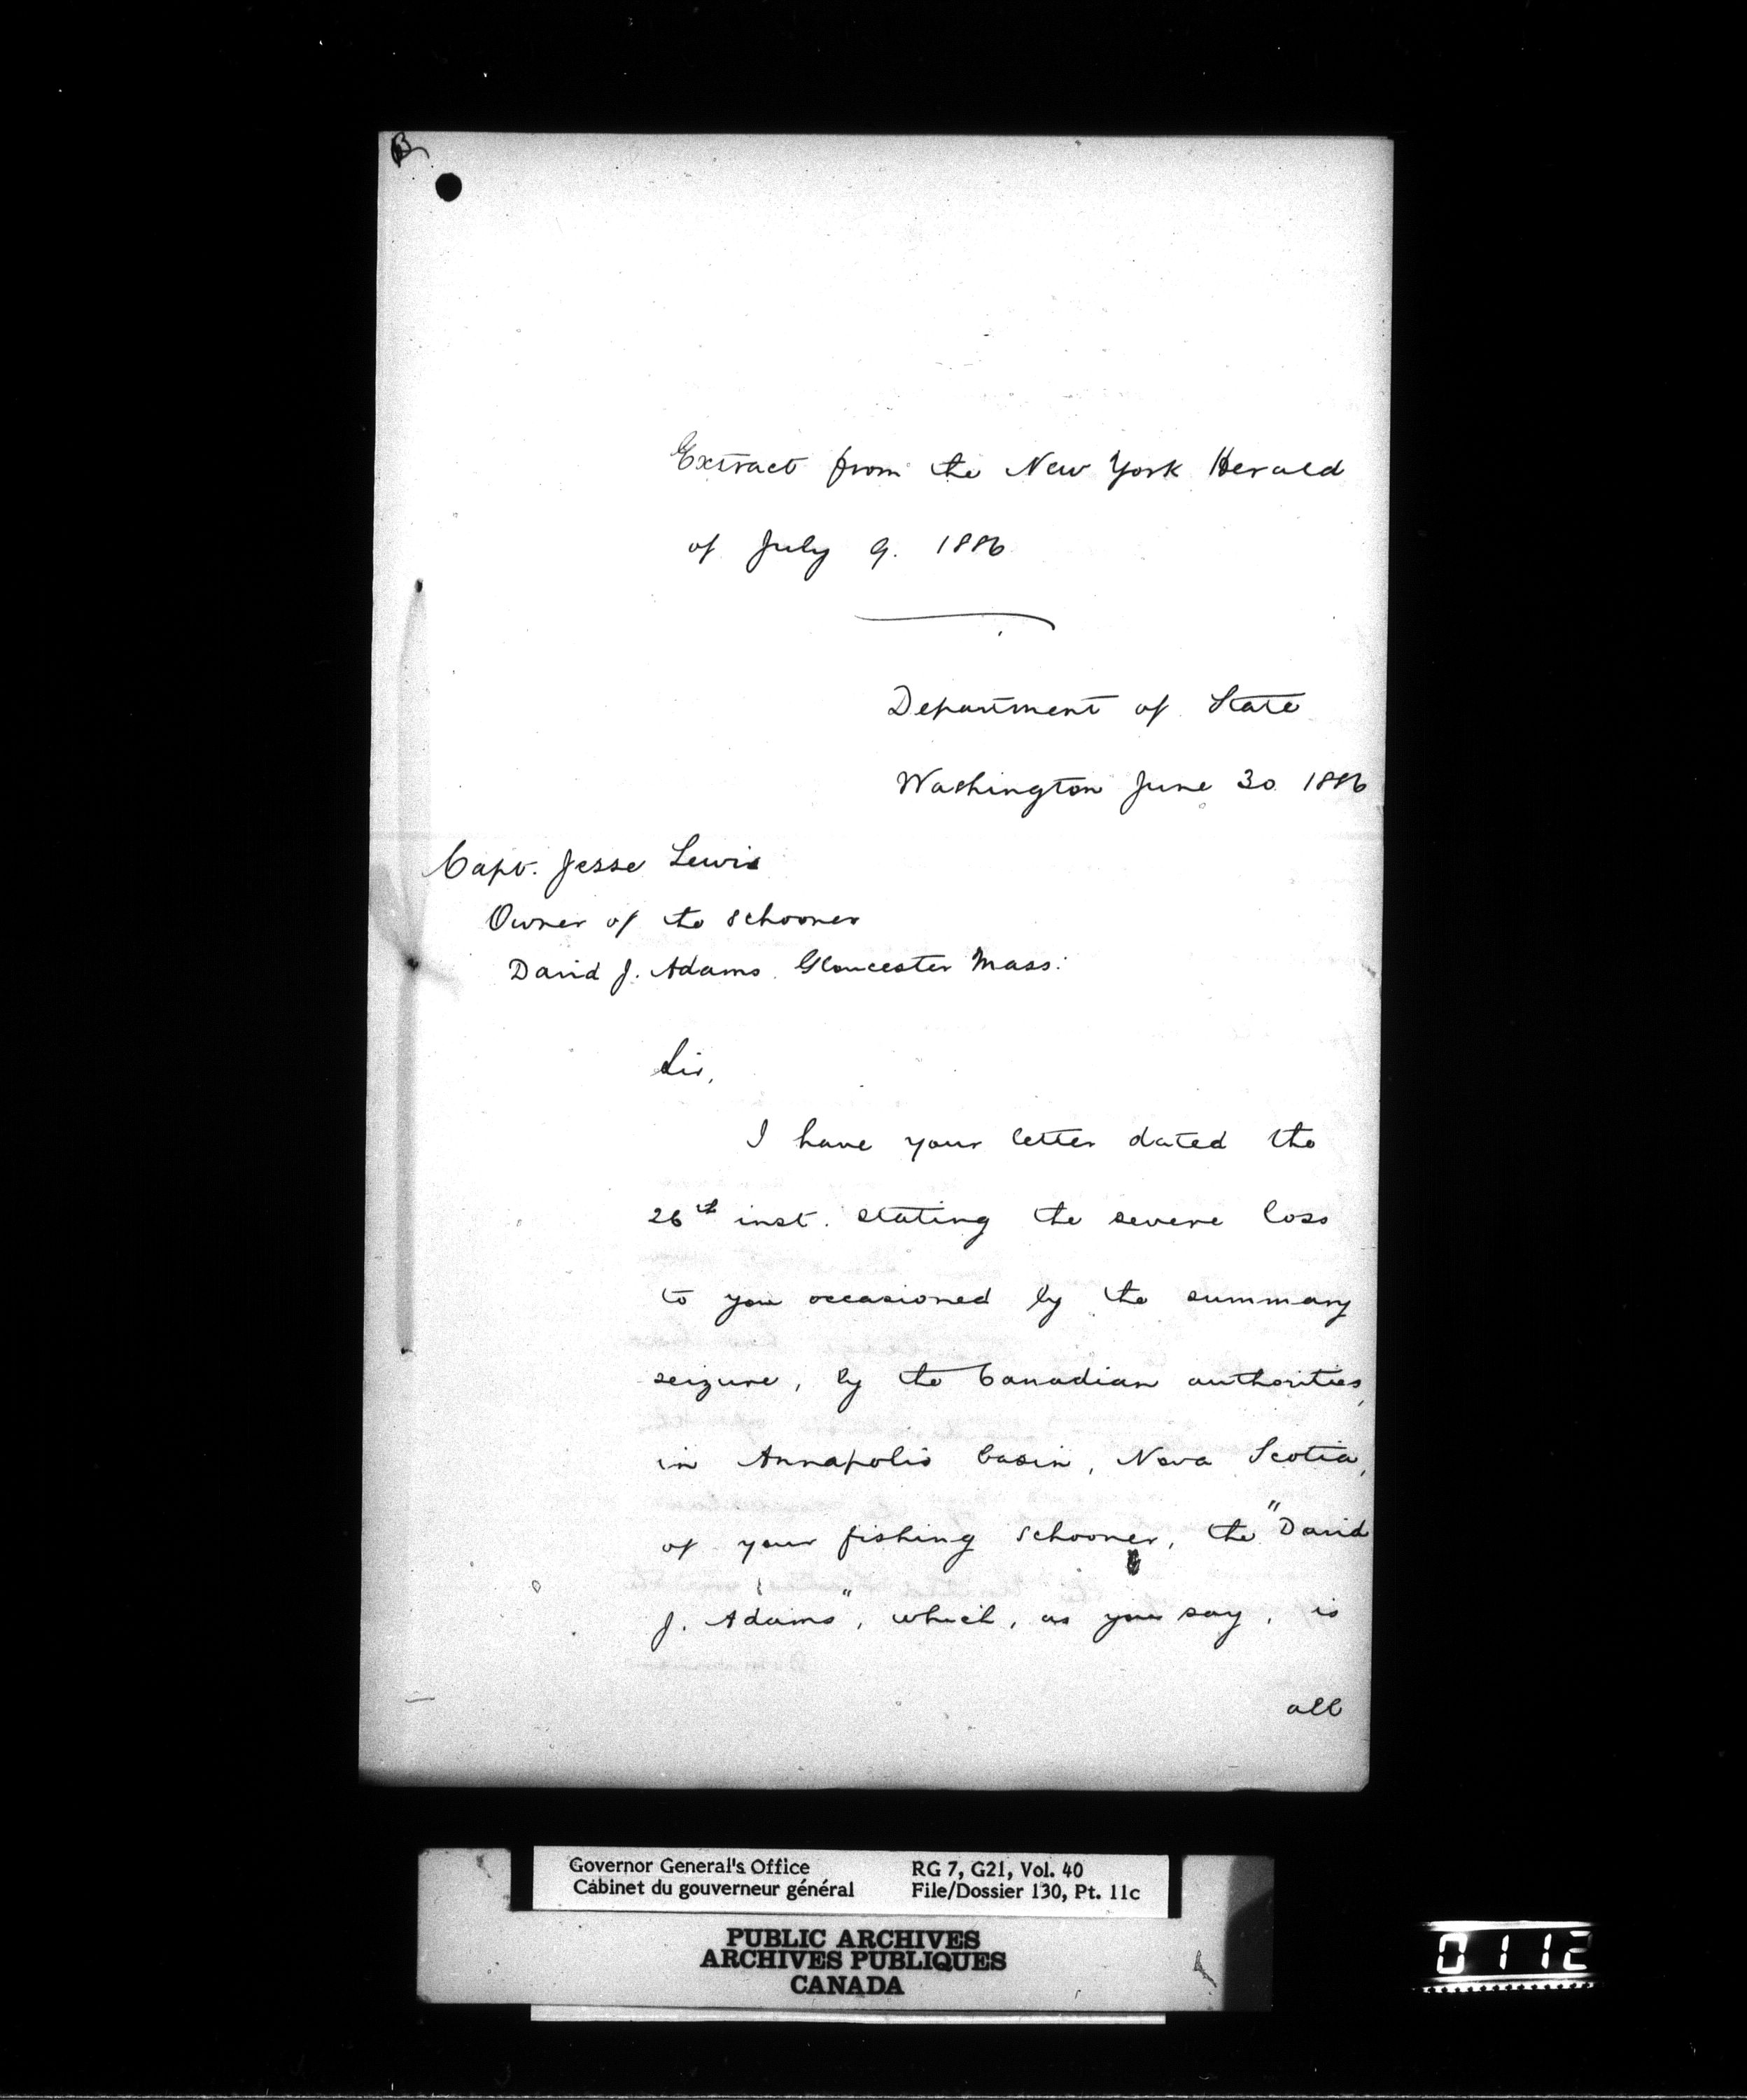 B
Extract from the New York Herald
of July 9. 1886
Department of State
Washington June 30 1886
Capt. Jesse Lewis
Owner of the schooner
David J. Adams. Gloucester Mass:
Sir,
I have your letter dated the
26th inst. stating the severe loss
to you occasioned by the summary
seizure, by the Canadian authorities,
in Annapolis basin, Nova Scotia,
of your fishing schooner, the "David
J. Adams", which, as you say, is
all
Governor General's Office
Cabinet du gouverneur général
RG 7, G21, Vol. 40
File/Dossier 130, Pt. 11c
PUBLIC ARCHIVES
ARCHIVES PUBLIQUES
CANADA
0112